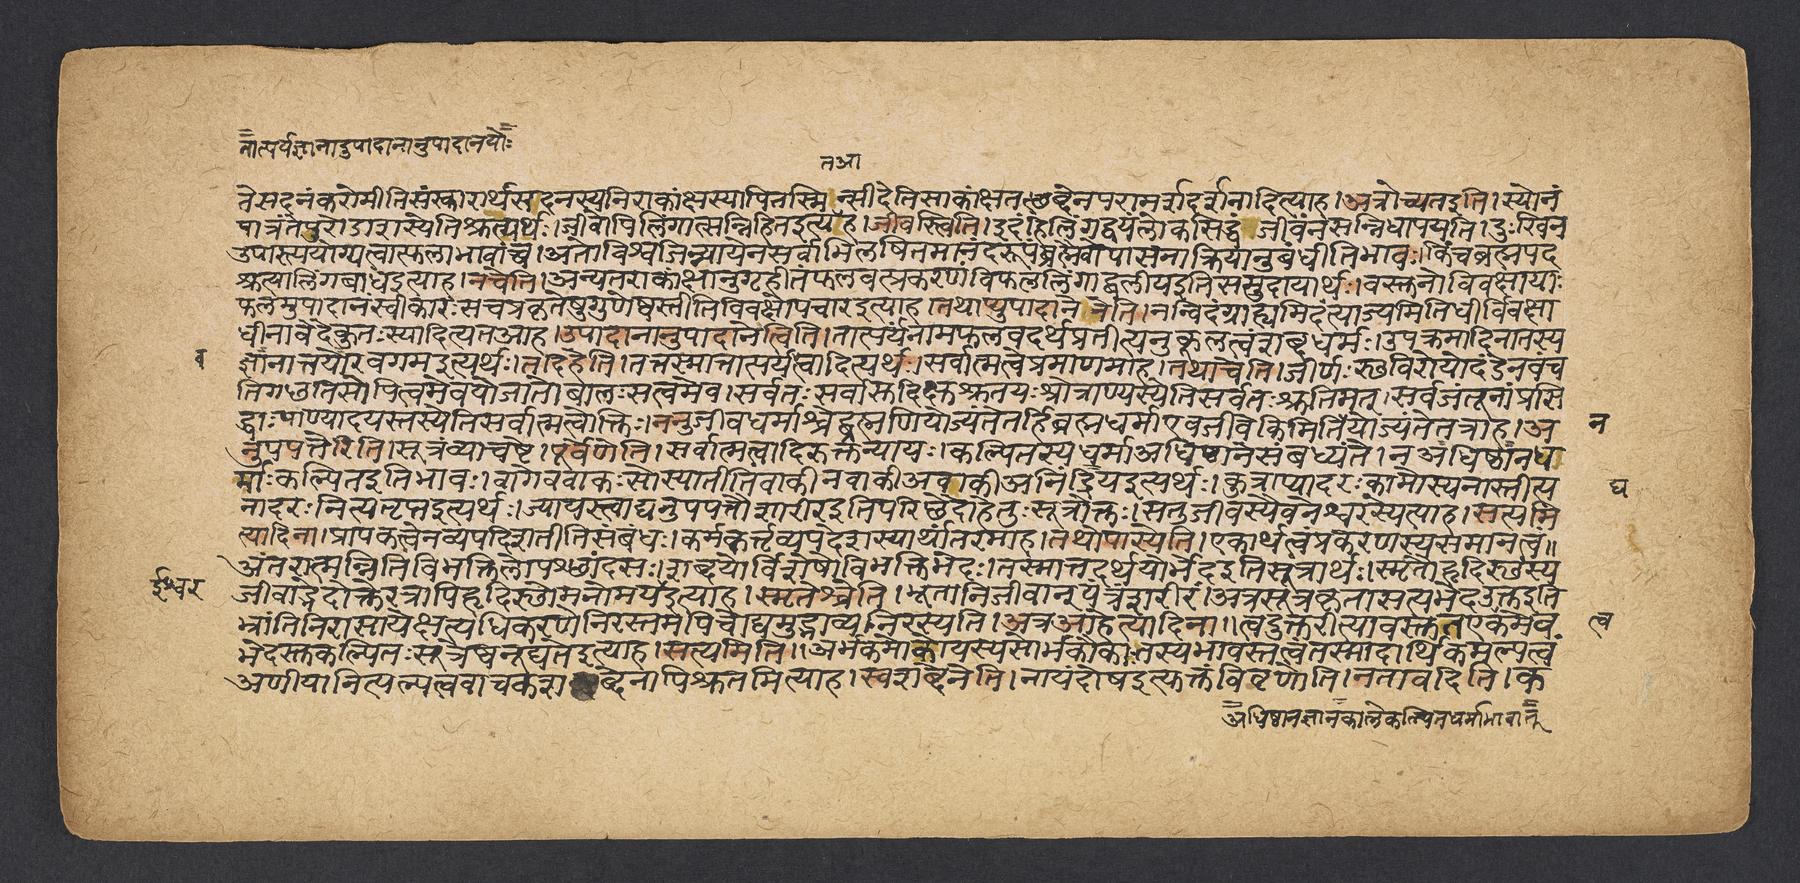 तात्पर्यज्ञानादुपादानानुपादानयोः
तआ
ते सदनंकरोमीतिसंस्कारार्थसदनस्यनिराकांक्षस्यापितस्मिन्सीदेतिसाकांक्षतछब्देनपरामर्शदर्शनादित्याह।अत्रोच्यतइति।स्योनं
पात्रंतेपुरोडाशस्येतिश्रुत्यर्थः।जीवोपिलिंगात्सन्निहितइत्याह।जीवस्त्विति।इदंहिलिंगद्वयंलोकसिद्धं जीवंनसन्निधापयति।दुःखिन
उपास्ययोग्यत्वात्फलाभावाच्च।अतोविश्वजिन्न्यायेनसर्वाभिलषितमानंदरूपंब्रह्मैवोपासनाक्रियानुबंधीतिभावः।किंचब्रह्मपद
श्रुत्यालिंगबाधइत्याह।नचेति।अन्यतराकांक्षानुगृहीतंफलवत्प्रकरणंविफललिंगाद्बलीयइतिसमुदायार्थः।वस्तुनोविवक्षायाः
फलमुपादानंस्वीकारःसचप्रकृतेषुगुणेष्वस्तीतिविवक्षोपचारइत्याह।तथाप्युपादाने नेति।नन्विदंग्राह्यमिदंत्याज्यमितिधीर्विवक्षा
धीनावेदेकुतःस्यादित्यतआह।उपादानानुपादानेत्विति।तात्पर्यंनामफलवदर्थप्रतीत्यनुकूलत्वंशब्दधर्मः।उपक्रमादिनातस्य
व
ज्ञानात्तयोरवगमइत्यर्थः।तदिहेति।तत्तस्मात्तात्पर्यवत्वादित्यर्थः।सर्वात्मत्वेप्रमाणमाह।तथाचेति।जीर्णःस्थविरोयोदंडेनवंच
तिगछतिसोपित्वमेवयोजातोबालःसत्वमेव।सर्वतःसर्वासुदिक्षुश्रुतयःश्रोत्राण्यस्येतिसर्वतःश्रुतिमत्।सर्वजंतूनांप्रसि
द्धाःपाण्यादयस्तस्येतिसर्वात्मत्वोक्तिः।ननुजीवधर्माश्चेद्ब्रह्मणियोज्यंतेतर्हिब्रह्मधर्माएवजीवेकिमितियोज्यंतेतत्राह।अ
न
नुपपत्तेरिति।सूत्रंव्याचष्टे।पूर्वेणेति।सर्वात्मत्वादिरुक्तन्यायः।कल्पितस्यधर्माअधिष्ठानेसंबध्यंते।नअधिष्ठानध
र्माःकल्पितइतिभावः।वागेववाकःसोस्यास्तीतिवाकीनवाकीअवाकीअनिंद्रियइत्यर्थः।कुत्राप्यादरःकामोस्यनास्तीत्य
घ
नादरःनित्यतृप्तइत्यर्थः।ज्यायस्त्वाद्यनुपपत्तौशारीरइतिपरिछेदोहेतुःसूत्रोक्तः।सतुजीवस्यैवनेश्वरस्येत्याह।सत्यमि
त्यादिना।प्रापकत्वेनव्यपदिशतीतिसंबंधः।कर्मकर्त्तृव्यपदेशस्यार्थांतरमाह।तथोपास्येति।एकार्थत्वंप्रकरणस्यसमानत्वं॥
अंतरात्मन्नितिविभक्तिलोपश्छांदसः।शब्दयोर्विशेषोविभक्तिभेदः।तस्मात्तदर्थयोर्भेदइतिसूत्रार्थः।स्मृतौहृदिस्थस्य
ईश्वर
जीवाद्भेदोक्तेरत्रापिहृदिस्थोमनोमयइत्याह।स्मृतेश्चेति।भूतानिजीवान्।यंत्रंशरीरं।अत्रसूत्रकृतासत्यभेदउक्तइति
भ्रांतिनिरासायेक्षत्यधिकरणेनिरस्तमपिचोद्यमुद्भाव्यनिरस्यति।अत्रआहेत्यादिना॥त्वदुक्तरीत्यावस्तुतएकमेव
त्व
भेदस्तुकल्पितःसूत्रेष्वनूद्यतइत्याह।सत्यमिति॥अर्भकमोकोयस्यसोर्भकौकाःतस्यभावस्तत्वंतस्मादार्थिकमल्पत्वं
अणीयानित्यल्पत्ववाचकशब्देनापिश्रुतमित्याह।स्वशब्देनेति।नायंदोषइत्युक्तंविवृणोति।नतावदिति।क
अधिष्ठानज्ञानकालेकल्पितधर्माभावात्